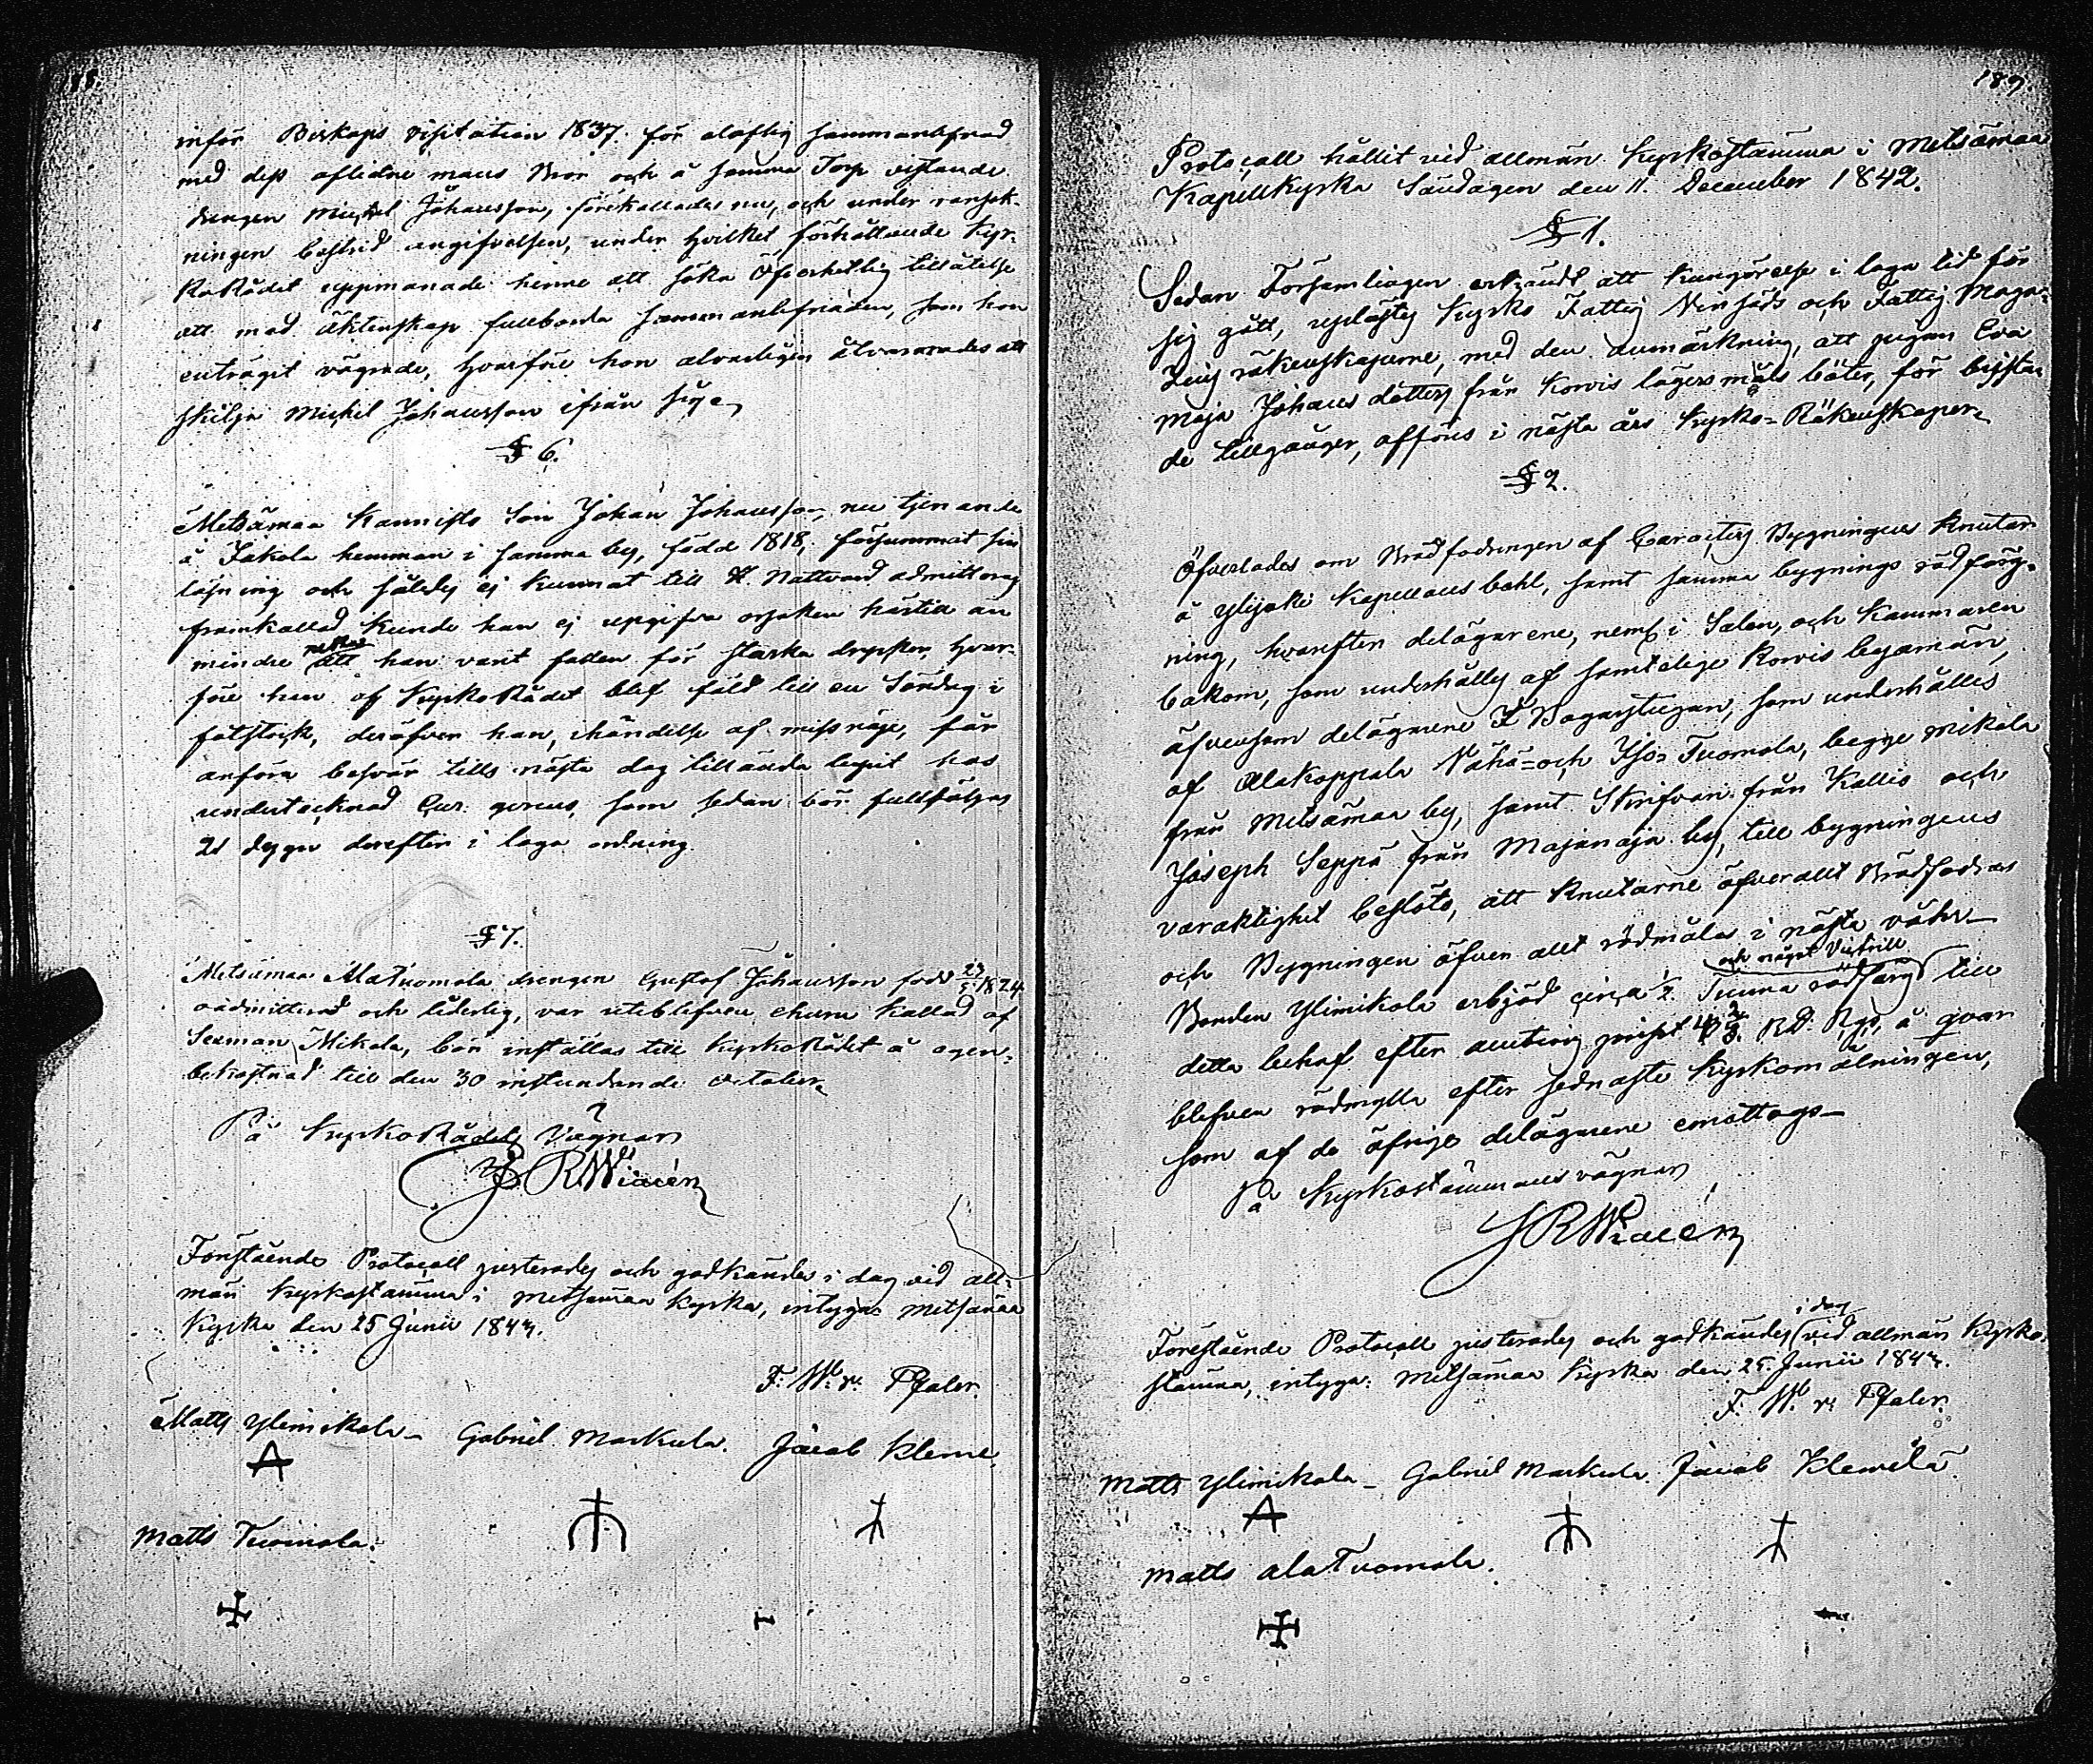 inför Biskops visitation 1837. för oloflig sammanlefnad
med dess aflidne mans Bror och å samma Torp vistande
drengen Michel Johansson, förekallades nu, och under ransak-
ningen bestred angifvelsen, under hvilket förhållande Kyr-
koRådet uppmanade henne att söka Öfverhetlig tillåtelse
att med äktenskap fullborda sammanlefnaden, som hon
enträget vägrade, hvarföre hon alvarligen åtvarnades att
skilja Michel Johansson ifrån sig.
§ 6.
Metsämaa Kannisto Son Johan Johansson, nu tjenande
å Jakola hemman i samma by, född 1818, försummat sin
läsning och således ej kunnat till H. Nattvard admitteras
framkallad kunde han ej uppgifva orsaken härtill än
mindre att han varit fallen för starka drycker, hvar-
före han af KyrkoRådet blef fäld till en Söndag i
fotstock, deröfver han, i händelse af missnöje, får
anföra besvär tills nästa dag till ända lupit hos
undertecknad Cur. gerens, som sedan bör fullföljas
21 dygn derefter i laga ordning.
§ 7.
Metsämaa AlaTuomola drengen Gustaf Johansson född 23/5 1824
oadmitterad och liderlig, var utebliven ehuru kallad af
Sexman Mikola, bör inställas till KyrkoRådet å egen
bekostnad till den 30 instundande October
På KyrkoRådets Vägnar
J R Widén
Förestående Protocoll justerades och godkändes i dag vid all-
män Kyrkostämma i Metsämaa Kyrka, intygar Metsämaa
Kyrka den 25 Junii 1843.
F. W. v. Pfaler.
Matts Ylimikola - Gabriel Markula. Jacob Kleme
Matts Tuomola.
189
Protocoll hållit vid allmän Kyrkostämma i Metsämaa
Kapellkyrka Söndagen den 11. December 1842.
§ 1.
Sedan Församlingen erkändt, att kungörelse i laga tid för
sig gått, upplästes Kyrko Fattig Vinsäds och Fattig Maga-
Zins räkenskaperne, med den anmärkning, att pigan Eva
Maja Johans dotters från Korvis lägersmåls böter, för brista
de tillgånger, afföres i nästa års Kyrko-Räkenskaper
§ 2.
Öfverlades om Brädfodringen af Caracters Bygningens Knutar
å Ylijoki Kapellans bohl, samt samma bygnings rödfärg-
ning, hvarefter delägarene, neml. i Salen, och Kammaren
bakom, som underhålles af samtelige Korvis byamän,
äfvensom delägarene I Bagarstugan, som underhålles
af Alakoppala Nähä- och Iso-Tuomola, begge Mikola
från Metsämaa by, samt Skrifvar från Kallis och
Joseph Seppä från Majanoja by, till bygningens
varaktighet beslöto, att Knutarne öfverallt Brädfodras
och Bygningen äfven allt rödmålas i nästa vår
och något Victrill
Bonden Ylimikola erbjöd circa 1/2 Tunna rödfärg till
detta behof efter auctions priset RD. Rgs, å qvar
blefven rödmylla efter sednaste Kyrkomålningen,
som af de öfrige delägarene emottogs-
På Kyrkostämmans vägnar
J R Widén
i dag
Förestående Protocoll justerades och godkändes vid allmän Kyrko-
stämma, intygar: Metsämaa Kyrka den 25. Junii 1843.
F. W. v. Pfaler.
Matts Ylimikola - Gabriel Markula. Jacob Klemelä
Matts alaTuomola.